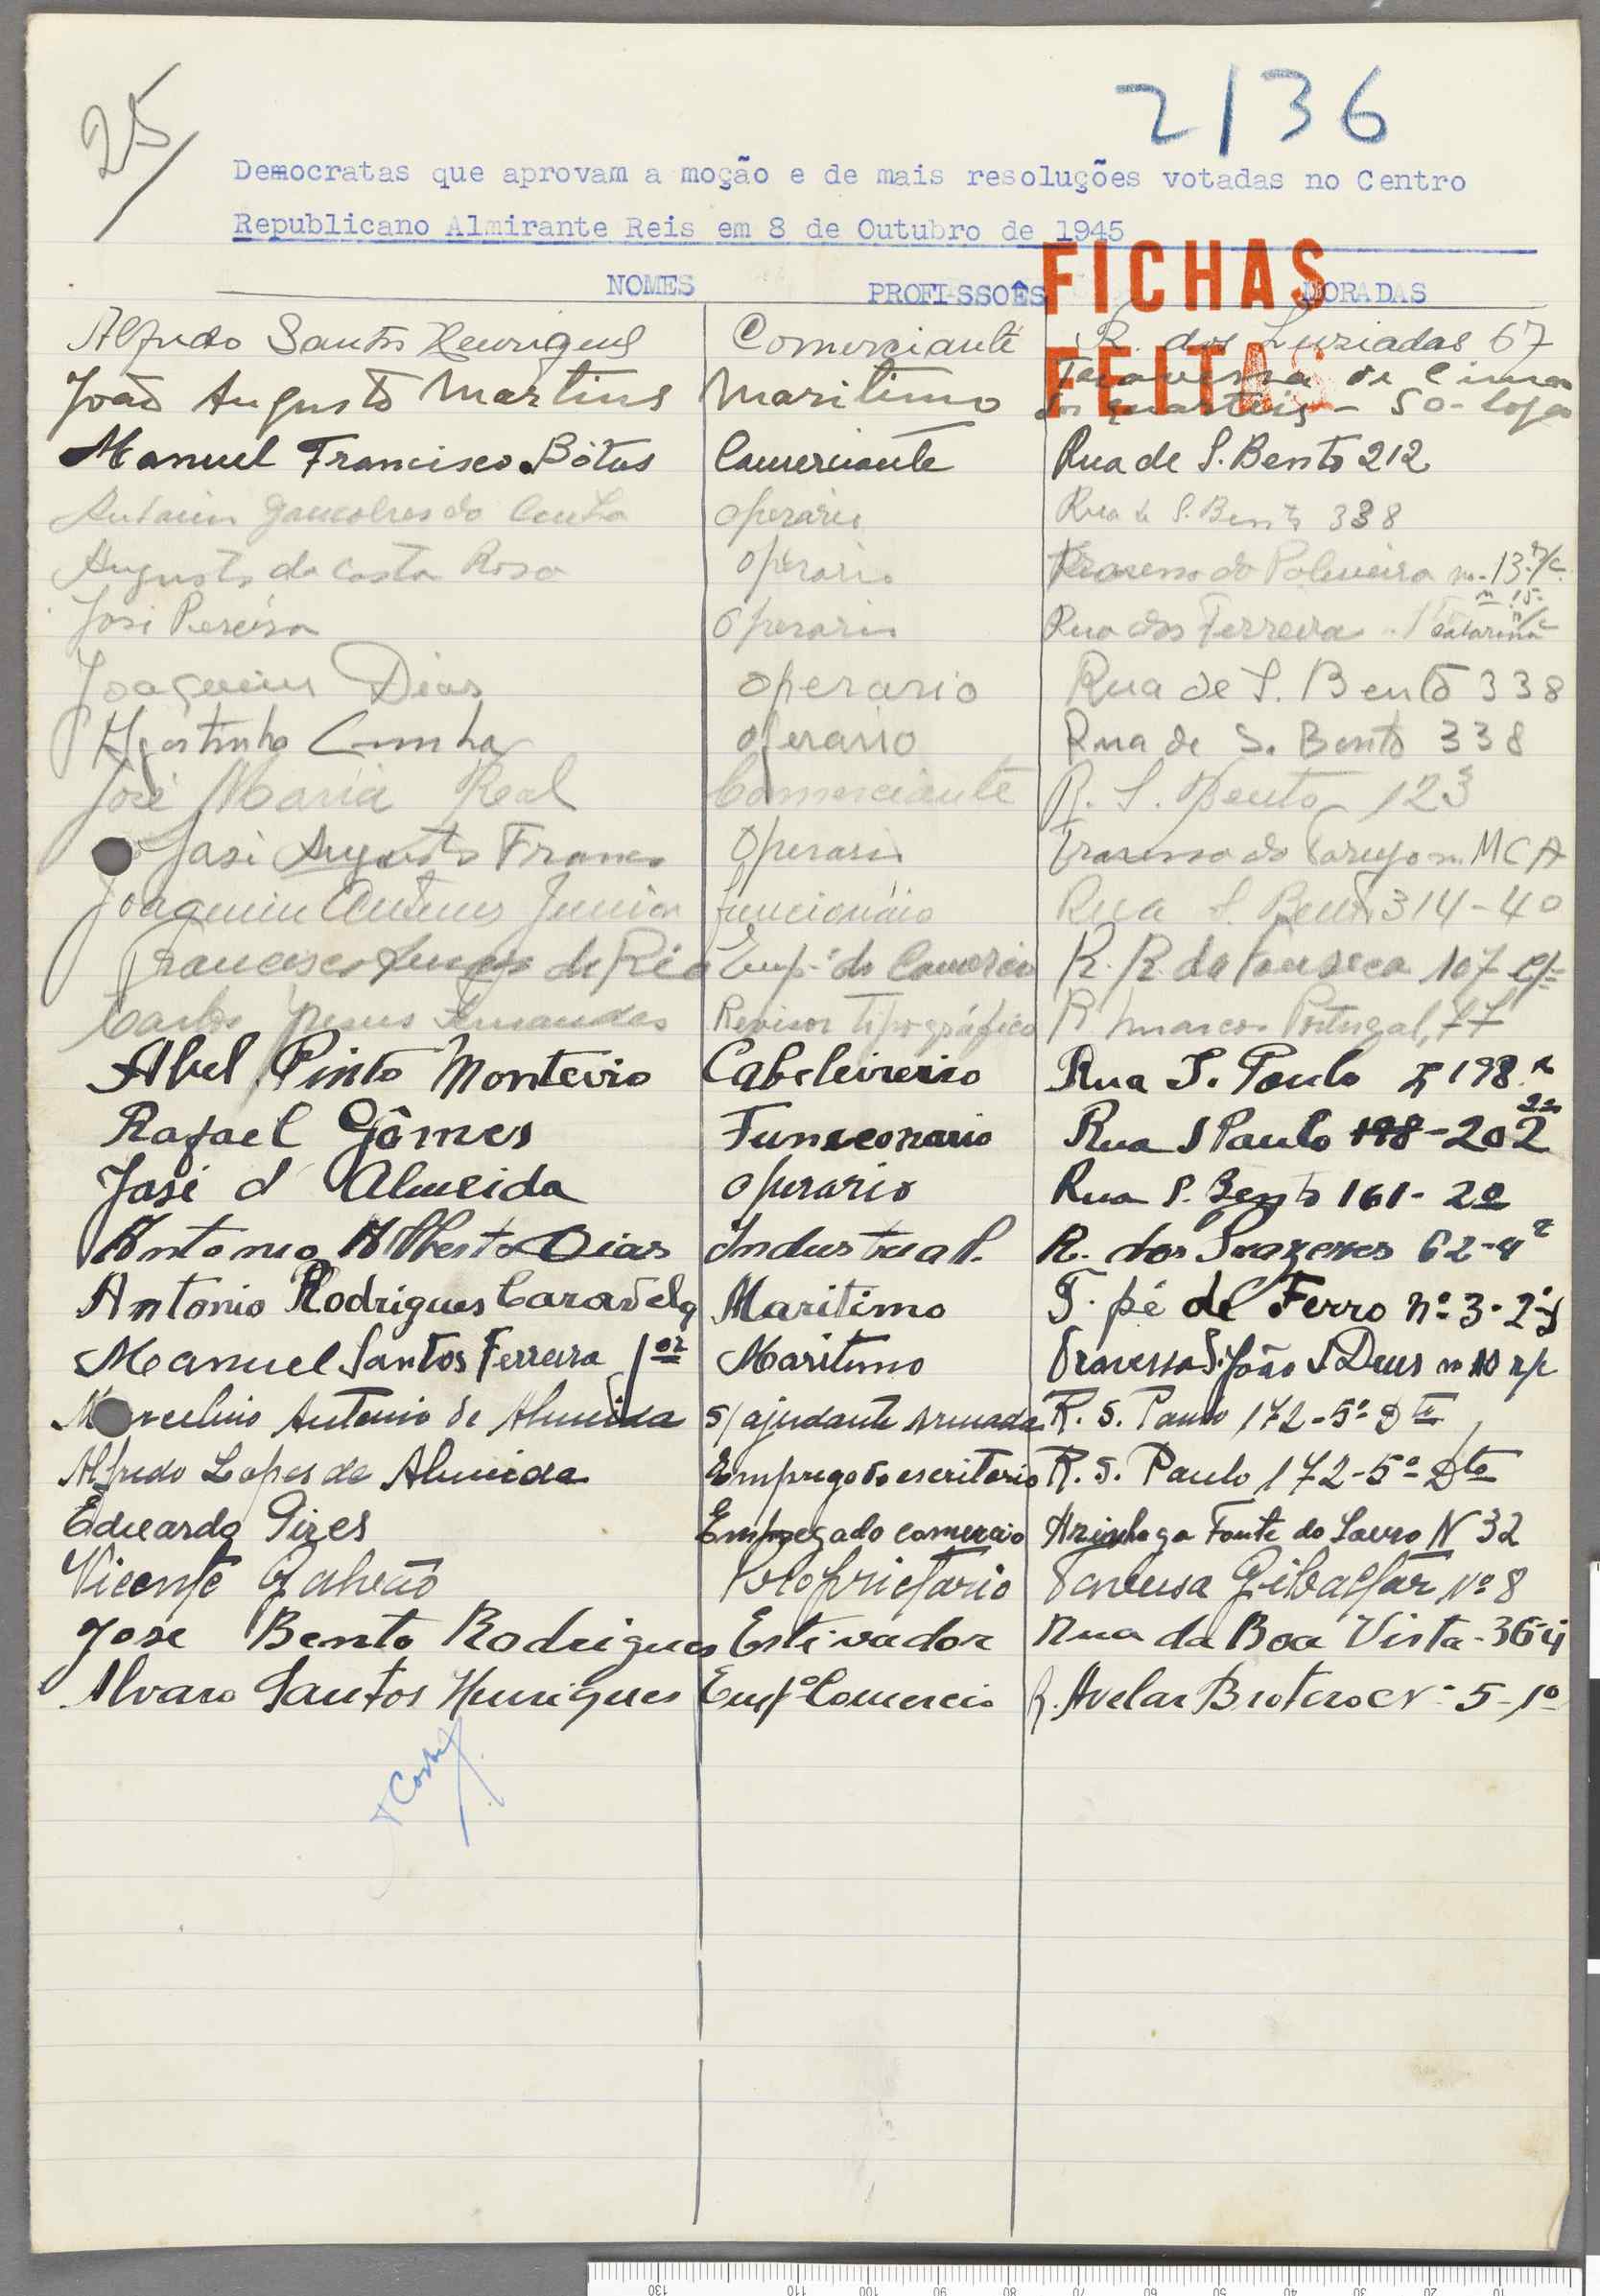 25
2136
Democratas que aprovam a moção e de mais resoluções votadas no Centro
Republicano Almirante Reis em 8 de Outubro de 1945
FICHAS
NOMES PROFISSOÊS MORADAS
Alfredo Santos Henriques Comerciante R. dos Lusiadas 67
FEITAS
João Augusto Martins Maritimo Travessa de Cima
dos quarteis - 50 - loja
Manuel Francisco Bótas Comerciante Rua de S. Bento 212
Gancalves da operário Rua de S. Bento 338
Augusto da Costa Rosa operario no-13-r/c
José Pereira operario Rua das Ferreira
Joaquim Dias operario Rua de S. Bento 338
Agostinho Cunha operario Rua de S. Bento 338
José Maria Real Comerciante R. S. Bento 123
José Augusto Franco operario Travessa do MCA
Joaquim Antunes Junior funcionário Rua S. Bento 314-40
Francisco do Emp. do Comercio R. R. da Fonseca 107
Carlos Jesus Fernandes Revisor tipográfico R Marcos Portugal, 77
Abel Pinto Monteiro Cabeleireiro Rua S. Paulo 198
Rafael Gômes Funcconario Rua S Paulo 198-202
José d' Almeida operario Rua S. Bento 161-2º
Antonio Alberto Dias Industrial. R. dos 62-4º
Antonio Rodrigues Caravela Maritimo T. pé de Ferro nº 3-2º
Manuel Santos Ferreira Jor Maritimo Travessa S. João d Deus n 10
Marcelino Antonio de Almeida s/ajudante Armada R. S. Paulo 172-5º Dto
Alfredo Lopes de Almeida Empregado escritorio R. S. Paulo 172-5º Dto
Eduardo Pires Empregado comercio Azinhaga Fonte do Louro N 32
Vicente Galvão Proprietario Travessa Gibraltar Nº 8
José Bento Rodrigues Estivador Rua da Boa Vista - 36-4
Alvaro Santos Henriques Empº Comercio R. Avelar Brotero Nº 5-1º